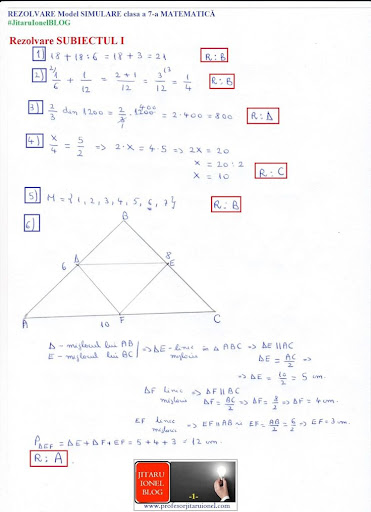 REZOLVARE Model SIMULARE clasa a 7-a MATEMATICĂ
#JitaruIonelBLOG
Rezolvare SUBIECTUL I
1) 18 + 18 : 6 = 18 + 3 = 21 R: B
2) 2/1/6 + 1/12 = 2+1/12 = 3/12 = 1/4 R: B
3) 2/3 din 1200 = 2/3 · 1200 400 = 2 · 400 = 800 R: A
4) x/4 = 5/2 => 2 · x = 4 · 5 => 2x = 20
x = 20 : 2
x = 10 R: C
5) M = {1, 2, 3, 4, 5, 6, 7} R: B
6)
B
6 D 8 E
A 10 F C
D - mijlocul lui AB
E - mijlocul lui BC => DE - linie mijlocie în Δ ABC => DE || AC
DE = AC/2 =>
=> DE = 10/2 = 5 cm.
DF linie mijlocie => DF || BC
DF = BC/2 = 8/2 => DF = 4 cm.
EF linie mijlocie => EF || AB EF = AB/2 = 6/2 => EF = 3 cm.
P DEF = DE + DF + EF = 5 + 4 + 3 = 12 cm.
R: A
JITARU
IONEL
BLOG
-1-
www.profesorjitaruionel.com